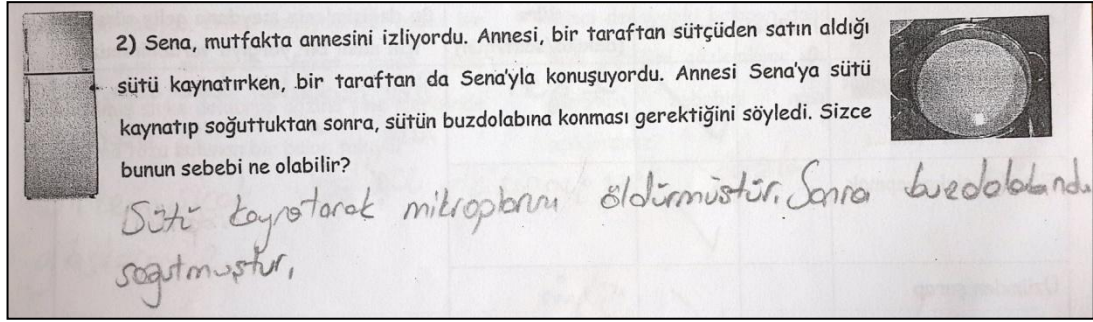 2) Sena, mutfakta annesini izliyordu. Annesi, bir taraftan sütçüden satın aldığı
sütü kaynatırken, bir taraftan da Sena'yla konuşuyordu. Annesi Sena'ya sütü
kaynatıp soğuttuktan sonra, sütün buzdolabına konması gerektiğini söyledi. Sizce
bunun sebebi ne olabilir?
Sütü kaynatarak mikroplarını öldürmüştür. Sonra buzdolabında
soğutmuştur.